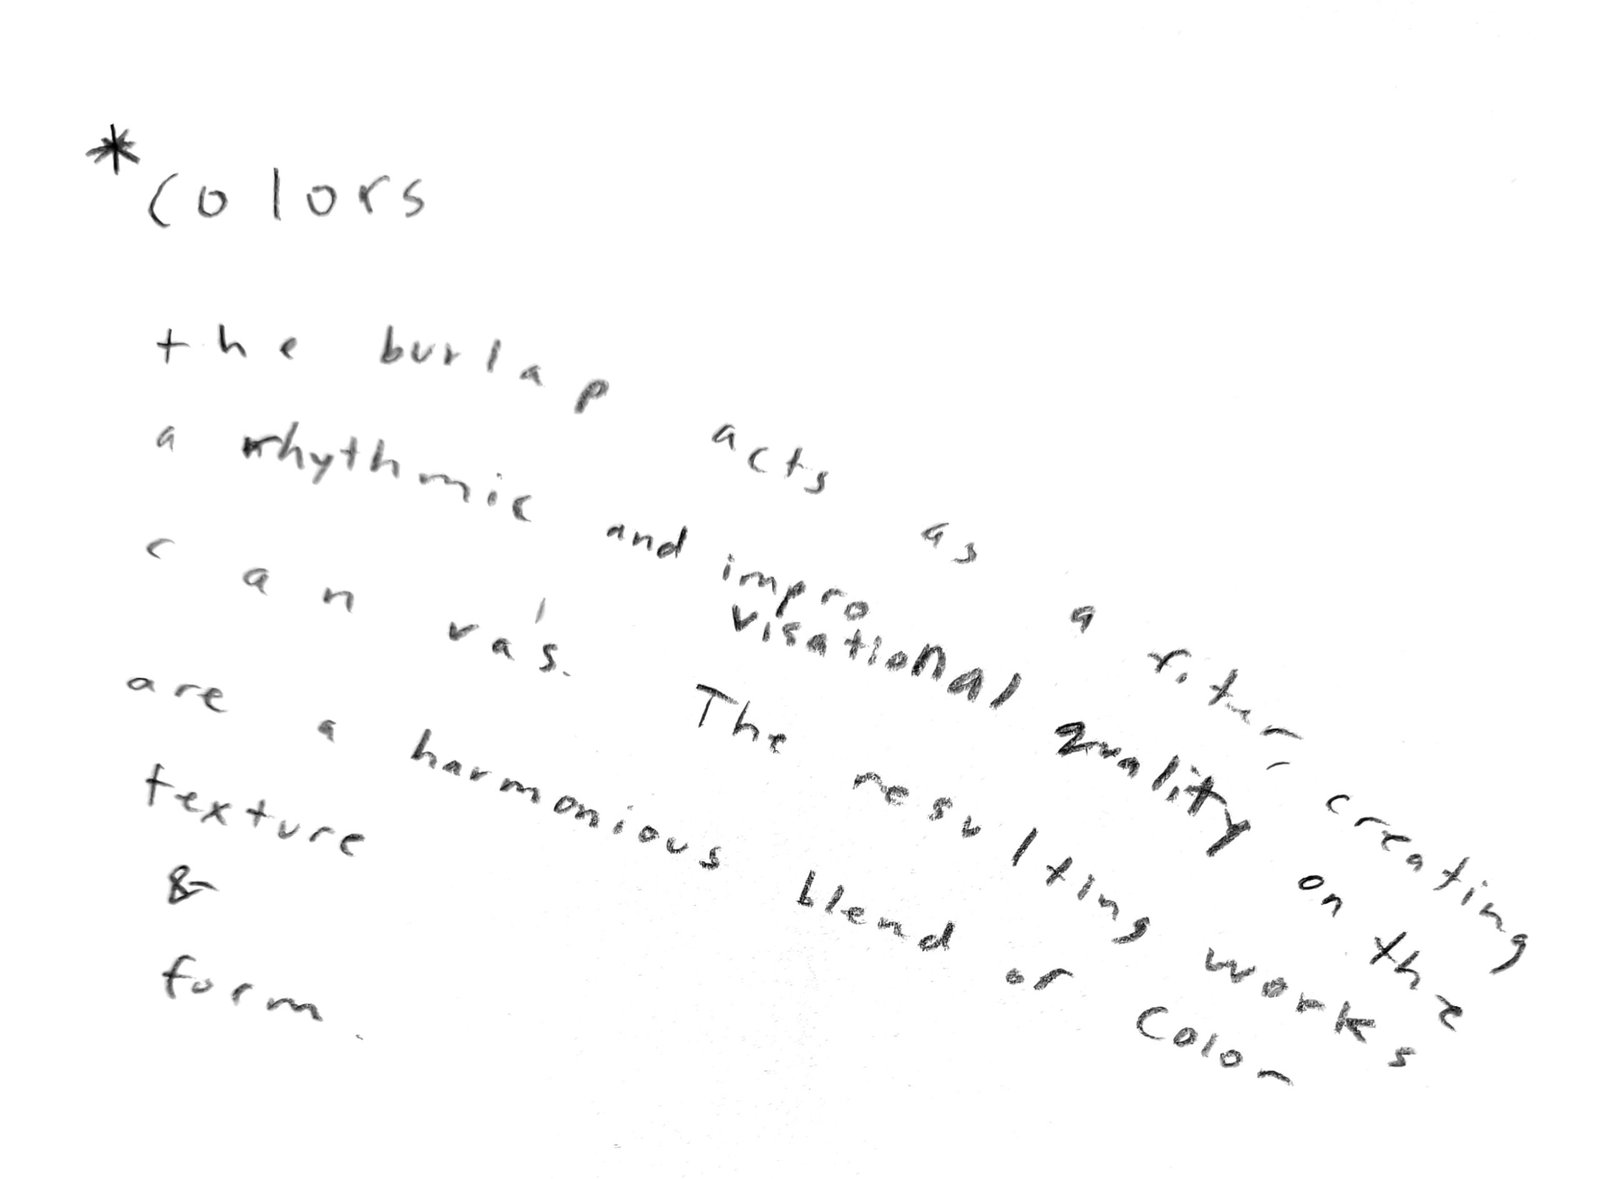 *colors
the burlap acts as a riter, creating
a rhythmic and impro
visational quality on the
canva's. The resulting works
are a harmonious blend of color
texture
&
form.